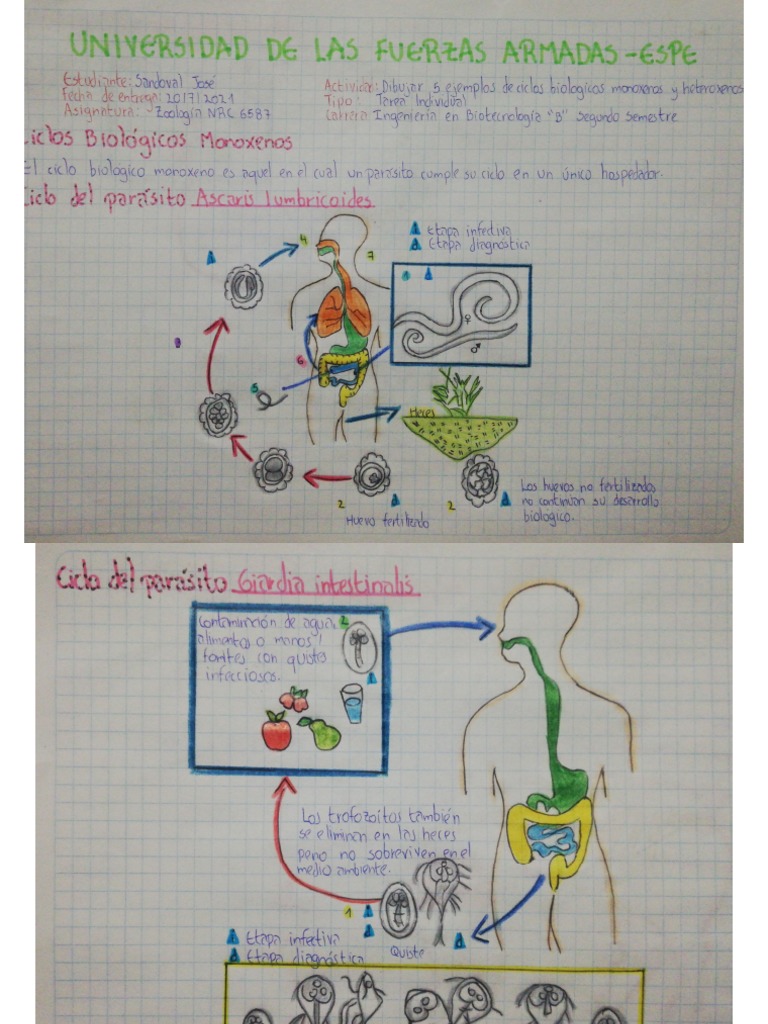 UNIVERSIDAD DE LAS FUERZAS ARMADAS-ESPE
Estudiante: Sandoval José
Fecha de entrega: 20/7/2021
Asignatura: Zoología NRC 6587
Actividad: Dibujar 5 ejemplos de ciclos biologicos monoxenos y heteroxenos
Tipo: Tarea Individual
Carrera: Ingeniería en Biotecnología "B" Segundo Semestre
Ciclos Biológicos Monoxenos
El ciclo biológico monoxeno es aquel en el cual un parásito cumple su ciclo en un único hospedador.
Ciclo del parásito Ascaris lumbricoides
Etapa infectiva
d Etapa diagnóstica
4
7
1
♀
♂
6
5
Heces
2
Huevo fertilizado
2
Los huevos no fertilizados
no continuan su desarrollo
biologico.
Ciclo del parásito Giardia intestinalis
Contaminación de agua, 2
alimentos o manos/
fomites con quiste
infecciosos.
Los trofozoitos también
se eliminan en las heces
pero no sobreviven en el
medio ambiente.
1
Etapa infectiva
d Etapa diagnóstica
Quiste
d